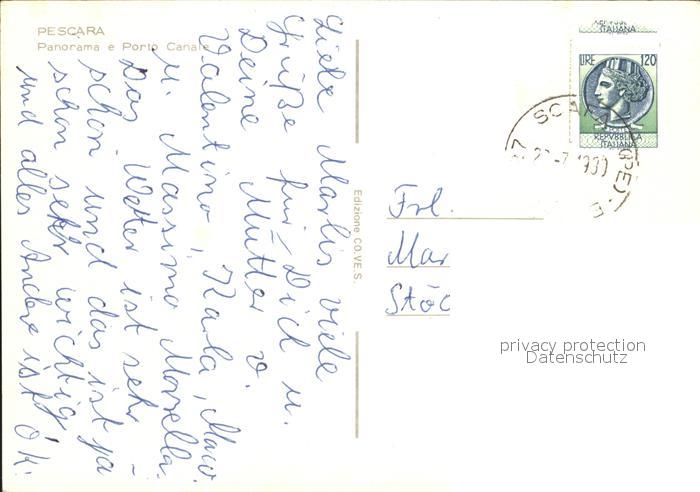 PESCARA
Panorama e Porto Canale
Liebe Marlis viele
Grüße für Dich u.
Deine Mutter v.
Valentino, Karla,
u. Massimo
Das Wetter ist sehr
schön und das ist ja
schon sehr wichtig
und alles Andere ist O.K.
Edizione CO.VE.S.
REPVBBLICA
ITALIANA
LIRE 120
REPVBBLICA
ITALIANA
SCAFA (PE)
Frl.
Mar
Stöc
privacy protection
Datenschutz